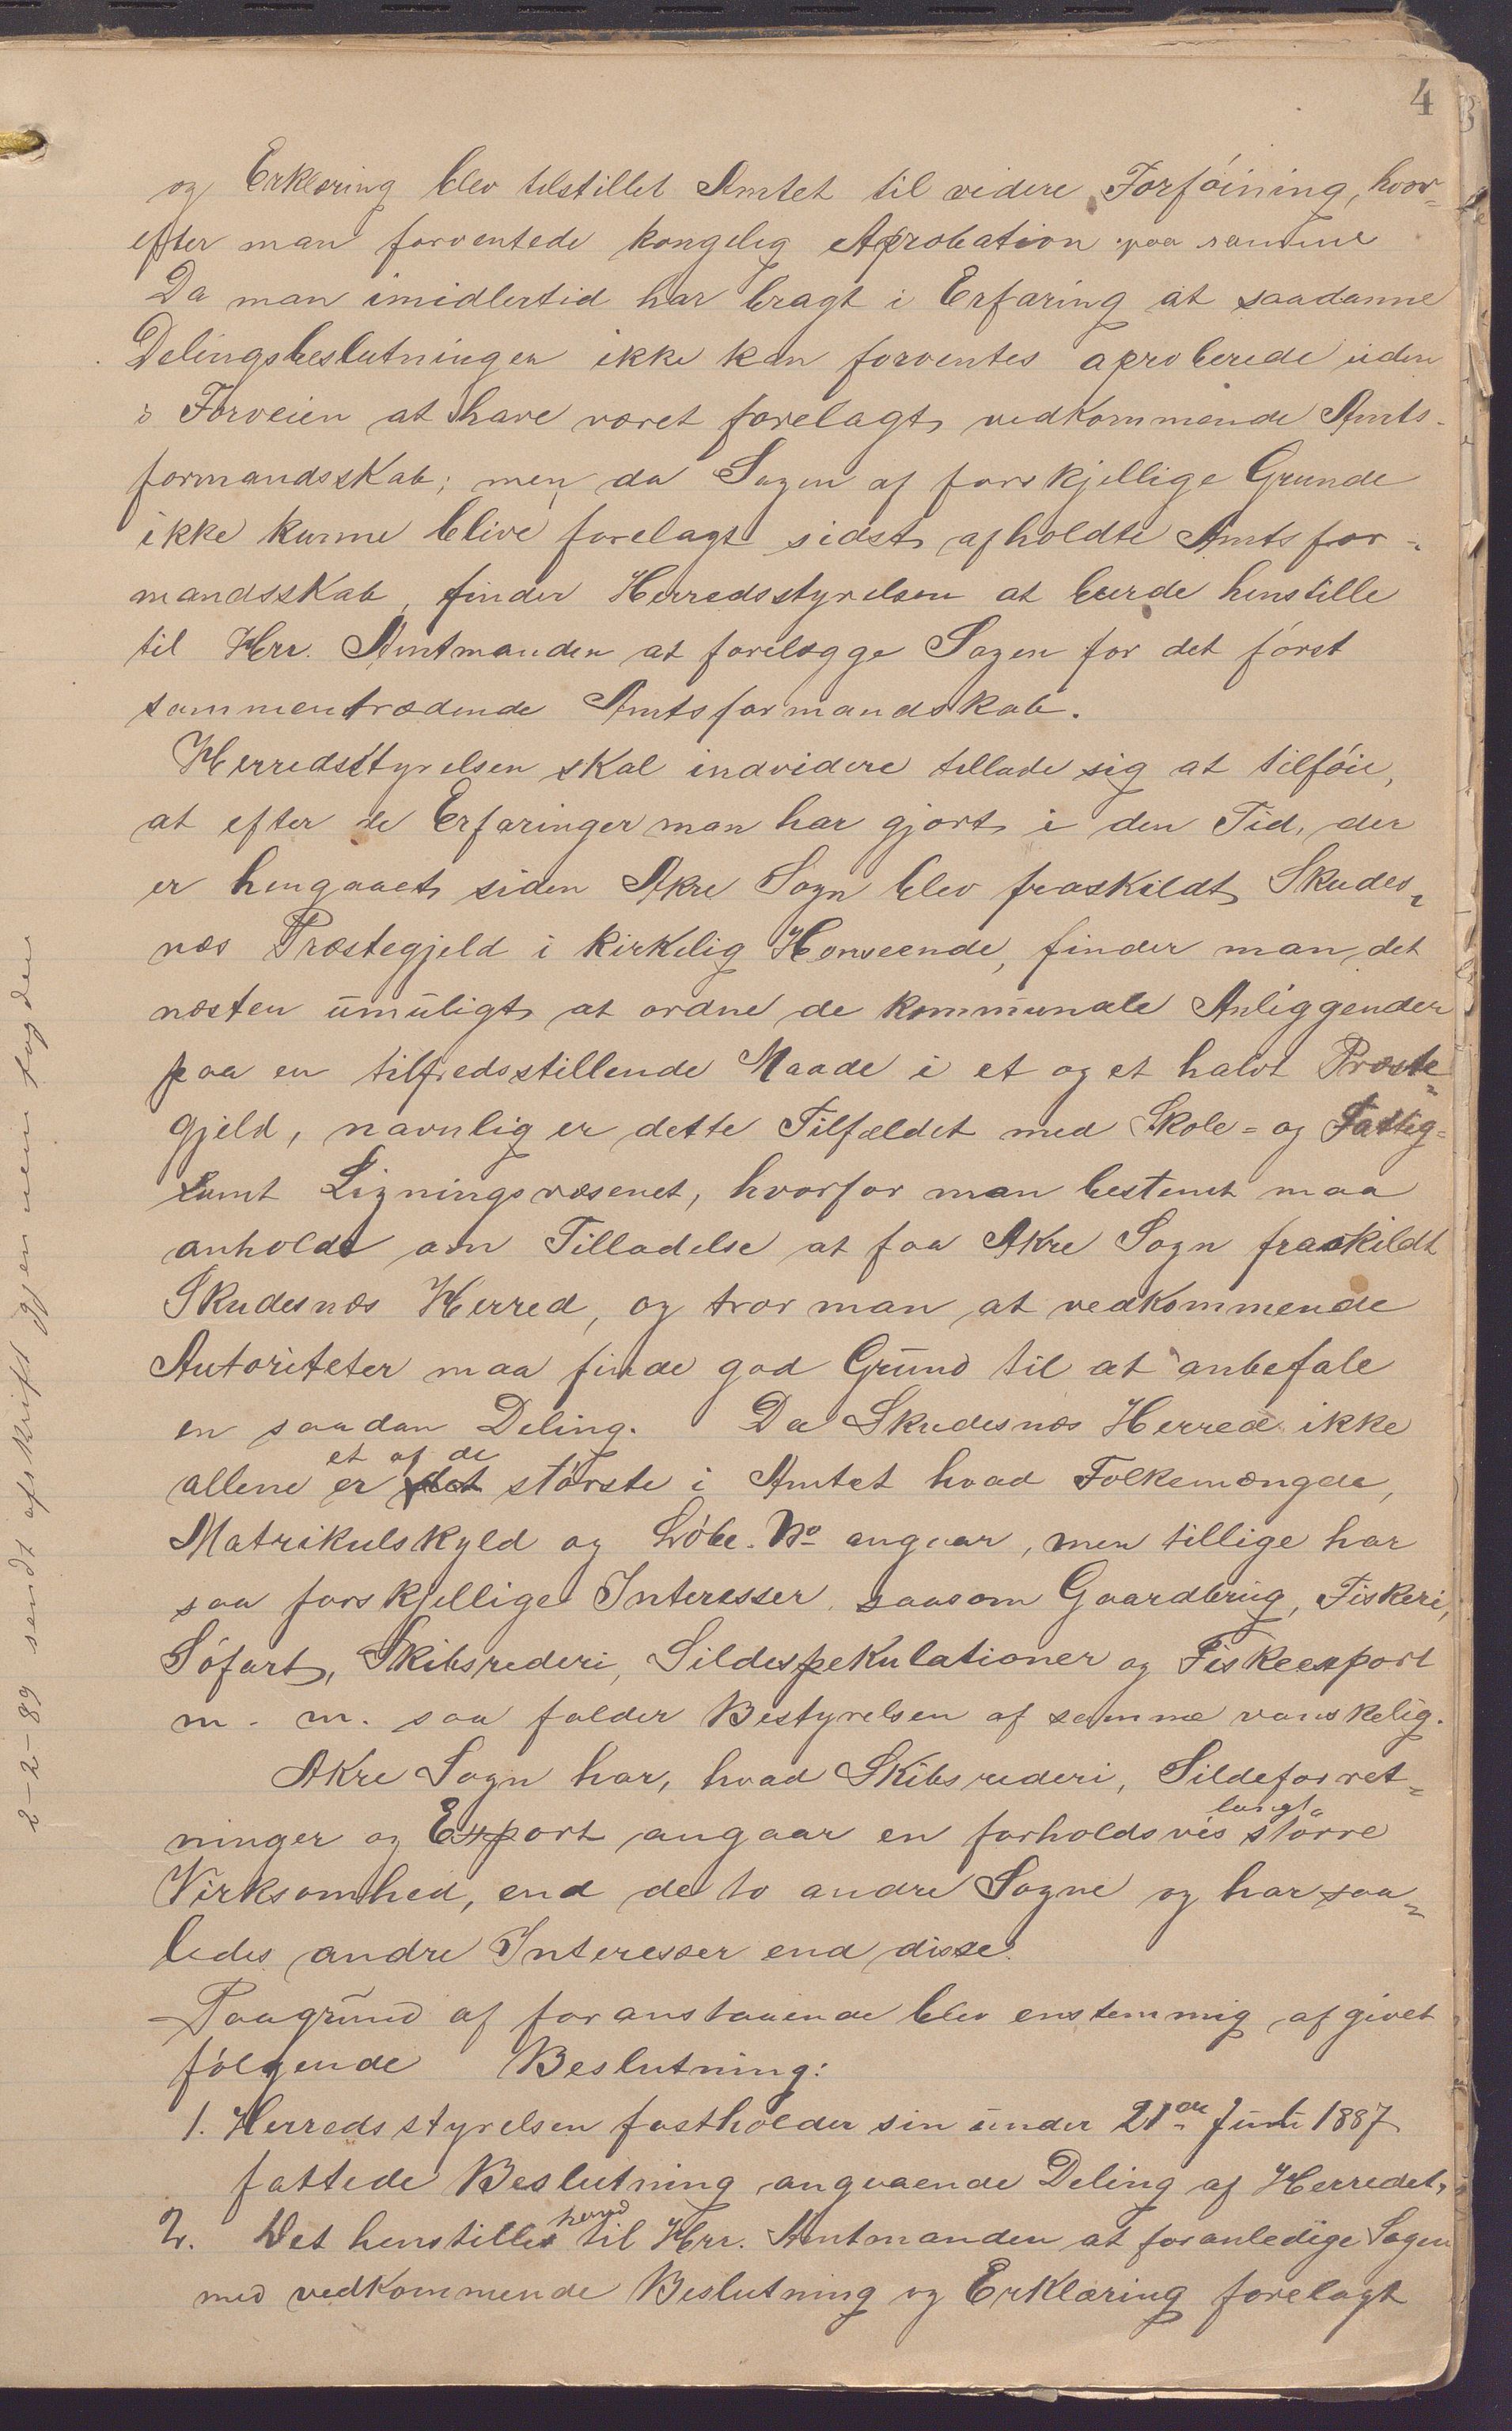 4
og Erklæring blev tilstillet Amtet til videre Forföining, hvor-
efter man forventede kongelig Aprobation paa samme
Da man imidlertid har bragt i Erfaring at saadanne
Delingsbeslutninger ikke kan forventes aproberede uden
i Forveien at have været forelagt vedkommende Amts-
formandsskab; men da Sagen af forskjellige Grunde
ikke kunne blive forelagt sidst afholdte Amtsfor-
mandsskab, finder Herredsstyrelsen at burde henstille
til Hrr. Amtmanden at forelægge Sagen for det först
sammentrædende Amtsformandskab.
Herredsstyrelsen skal indvidere tillade sig at tilföie,
at efter de Erfaringer man har gjort i den Tid, der
er hengaaet siden Akre Sogn blev fraskildt Skudes-
næs Præstegjeld i kirkelig Henseende, finder man det
næsten umuligt at ordne de kommunale Anliggender
paa en tilfredsstillende Maade i et og et halvt Præste-
gjeld, navnlig er dette Tilfældet med Skole- og Fattig-
samt Ligningsvæsenet, hvorfor man bestemt maa
anholde om Tilladelse at faa Akre Sogn fraskildt
Skudesnæs Herred, og tror man at vedkommende
Autoriteter maa finde god Grund til at anbefale
en saadan Deling. Da Skudesnæs Herred ikke
et af de
allene er det störste i Amtet hvad Folkemængde,
Matrikulskyld og Löbe. No angaar, men tillige har
saa forskjellige Interesser saasom Gaardbrug, Fiskeri,
Söfart, Skibsrederi, Sildespekulationer og Fiskeexport
m. m. saa falder Bestyrelsen af samme vanskelig.
Akre Sogn har, hvad Skibsrederi, Sildeforret-
langt
ninger og Export angaar en forholdsvis större
Virksomhed, end de to andre Sogne og har saa-
ledes andre Interesser end disse.
Paagrund af foranstaaende blev enstemmig afgivet
fölgende Beslutning:
1. Herredsstyrelsen fastholder sin under 21de Juni 1887
fattede Beslutning angaaende Deling af Herredet.
2. Det henstilles til Hrr. Amtmanden at foranledige Sagen
med vedkommende Beslutning og Erklæring forelagt
2-2-89 sendt afskrift igjen